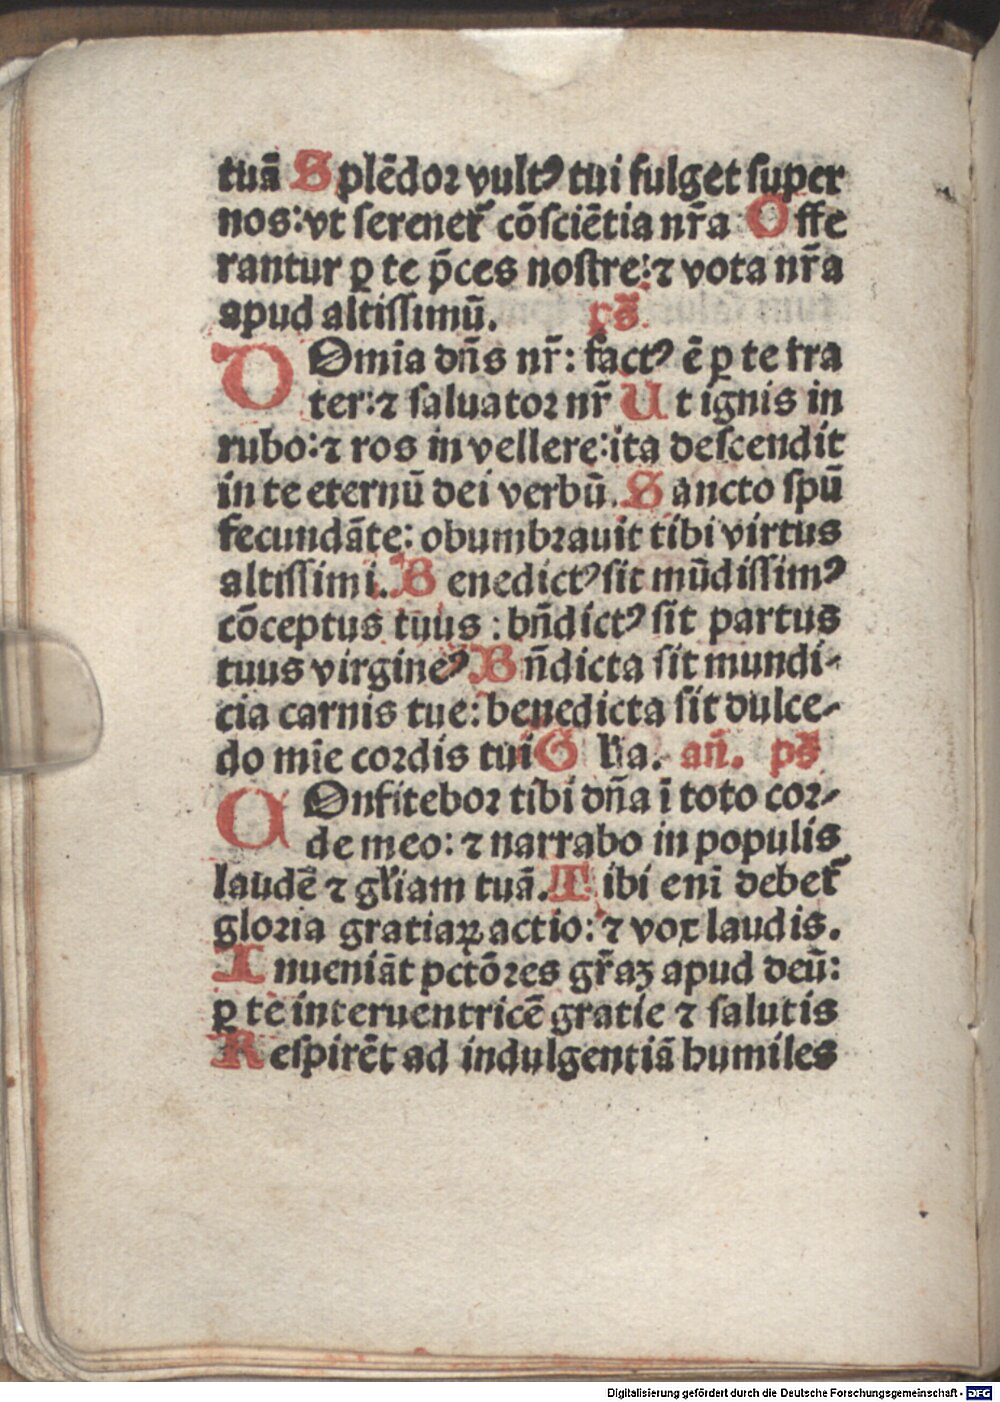 tuā Splēdoꝛ vultꝰ tui fulget super
nos: vt serenet᷑ cōsciētia nr̄a Offe
rantur ꝑ te p̄ces nostre: ⁊ vota nr̄a
apud altissimū. ps̄
DOmia dn̄s nr̄: factꝰ ē ꝑ te fra
ter: ⁊ saluatoꝛ nr̄ Ut ignis in
rubo: ⁊ ros in vellere: ita descendit
in te eternū dei verbū. Sancto spū
fecundāte: obumbꝛauit tibi virtus
altissimi. Benedictꝰ sit mūdissimꝰ
cōceptus tuus: bn̄dictꝰ sit partus
tuus virgineꝰ Bn̄dicta sit mundi-
cia carnis tue: benedicta sit dulce-
do mīe coꝛdis tui Gl̄ia. an̄. ps̄
COnfiteboꝛ tibi dn̄a ī toto coꝛ-
de meo: ⁊ narrabo in populis
laudē ⁊ gl̄iam tuā. Tibi enī debet᷑
gloꝛia gratiaꝝ actio: ⁊ vox laudis.
Inueniāt pctōꝛes gr̄aꝫ apud deū:
ꝑ te interuentricē gratie ⁊ salutis
Respirēt ad indulgentiā humiles
Digitalisierung gefördert durch die Deutsche Forschungsgemeinschaft - DFG